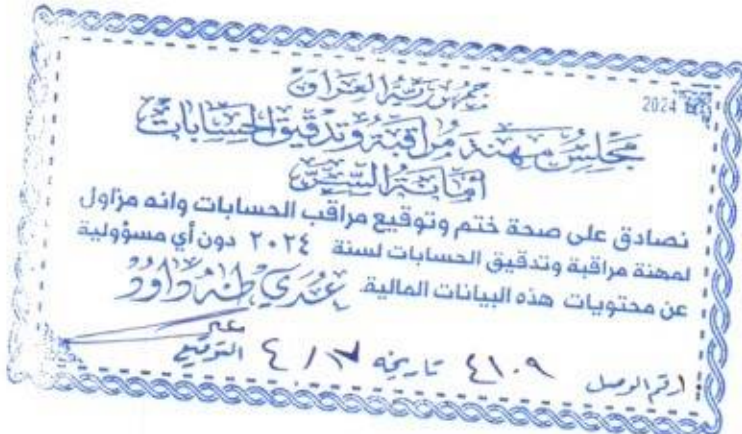 2024
جمهورية العراق
مجلس مهنة مراقبة وتدقيق الحسابات
أمانة السر
نصادق على صحة ختم وتوقيع مراقب الحسابات وانه مزاول
لمهنة مراقبة وتدقيق الحسابات لسنة ٢٠٢٤ دون أي مسؤولية
عن محتويات هذه البيانات المالية. عدي طه داود
رقم الوصل ٤١٠٩ تاريخه ١٧ / ٤ التوقيع